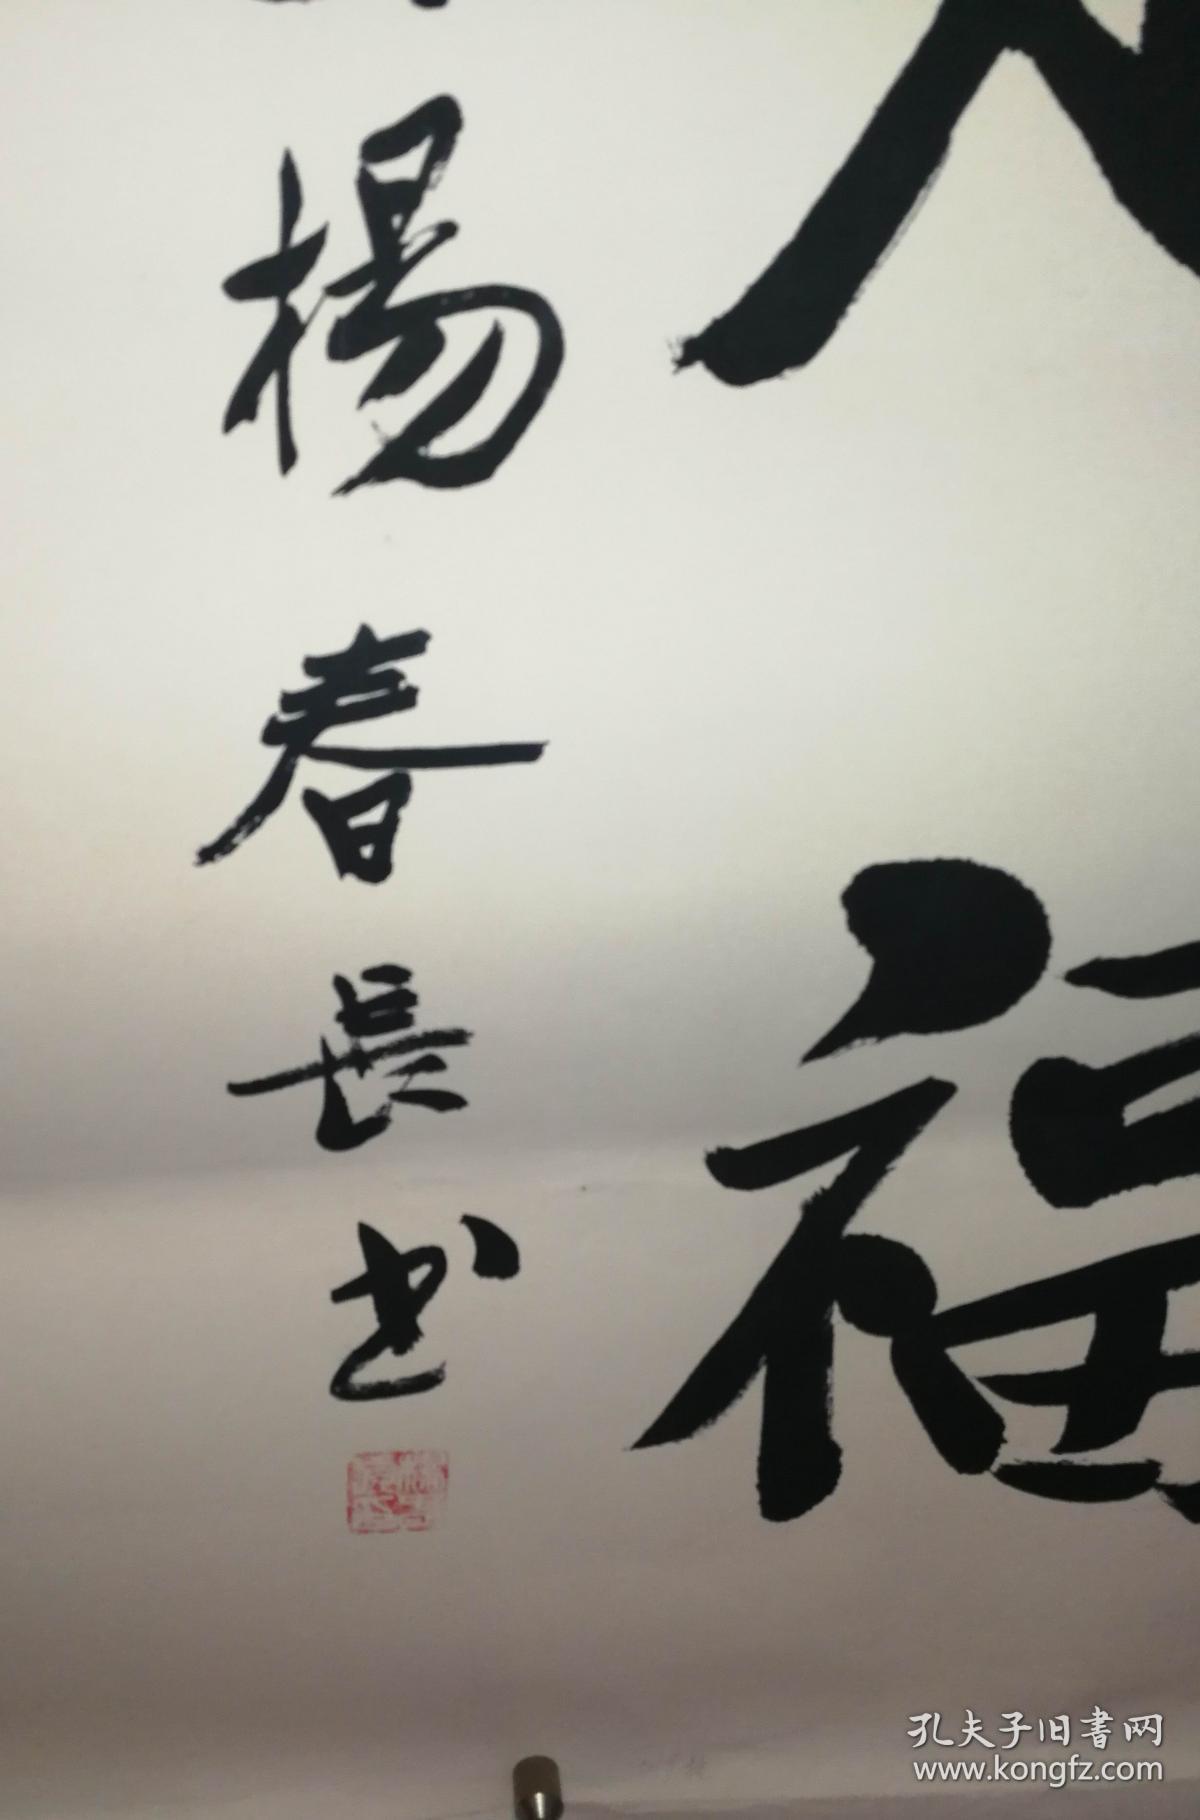 福
楊春長书
孔夫子旧書网
www.kongfz.com